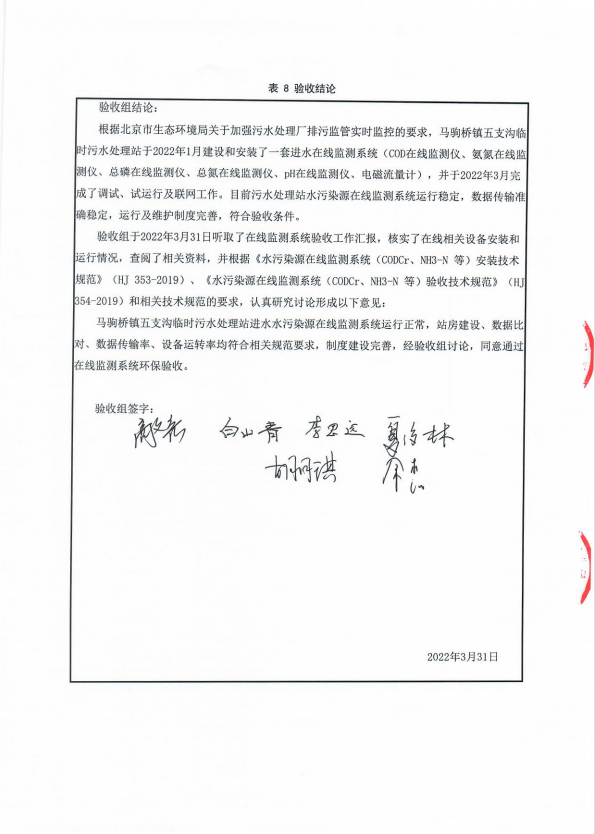 表 8 验收结论
验收组结论：
根据北京市生态环境局关于加强污水处理厂排污监管实时监控的要求，马驹桥镇五支沟临
时污水处理站于2022年1月建设和安装了一套进水在线监测系统（COD在线监测仪、氨氮在线监
测仪、总磷在线监测仪、总氮在线监测仪、pH在线监测仪、电磁流量计），并于2022年3月完
成了调试、试运行及联网工作。目前污水处理站水污染源在线监测系统运行稳定，数据传输准
确稳定，运行及维护制度完善，符合验收条件。
验收组于2022年3月31日听取了在线监测系统验收工作汇报，核实了在线相关设备安装和
运行情况，查阅了相关资料，并根据《水污染源在线监测系统（CODCr、NH3-N 等）安装技术
规范》（HJ 353-2019）、《水污染源在线监测系统（CODCr、NH3-N 等）验收技术规范》（HJ
354-2019）和相关技术规范的要求，认真研究讨论形成以下意见：
马驹桥镇五支沟临时污水处理站进水水污染源在线监测系统运行正常，站房建设、数据比
对、数据传输率、设备运转率均符合相关规范要求，制度建设完善，经验收组讨论，同意通过
在线监测系统环保验收。
验收组签字：
白山青 李卫远
2022年3月31日